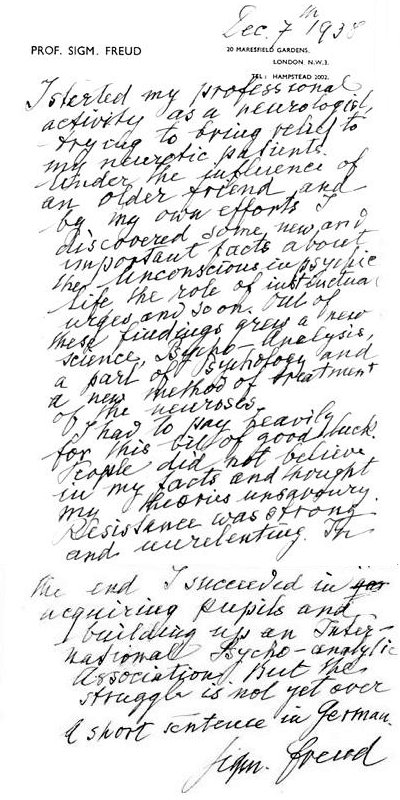 Dec. 7th 1938
PROF. SIGM. FREUD
20 MARESFIELD GARDENS.
LONDON. N.W.3.
TEL: HAMPSTEAD 2002.
I sterted my professional
activity as a neurologist,
trying to bring relief to
my neurotic patients.
Under the influence of
an older friend and
by my own efforts I
discovered some new and
important facts about
the Unconscious in psychic
life the role of instinctual
urges and so on. Out of
these findings grew a new
science, Psycho-Analysis,
a part of Psychology and
a new method of treatment
of the neuroses.
I had to pay heavily
for this bit of good luck.
People did not believe
in my facts and thought
my theories unsavoury.
Resistance was strong
and unrelenting. In
the end I succeeded in
acquiring pupils and
building up an Inter-
national Psycho-analytic
Association. But the
struggle is not yet over
A short sentence in German.
Sigm. Freud